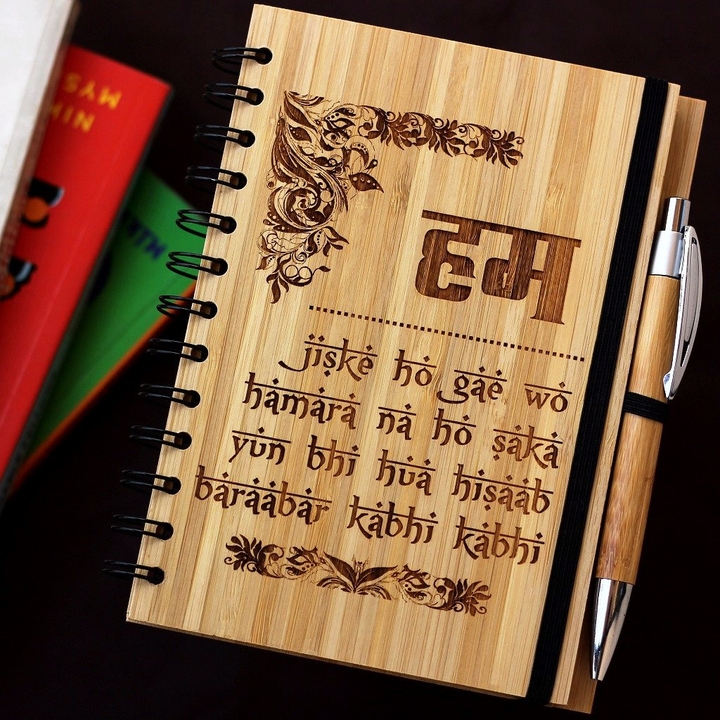 हम
jiske ho gae wo
hamara na ho saka
yun bhi hua hisaab
baraabar kabhi kabhi